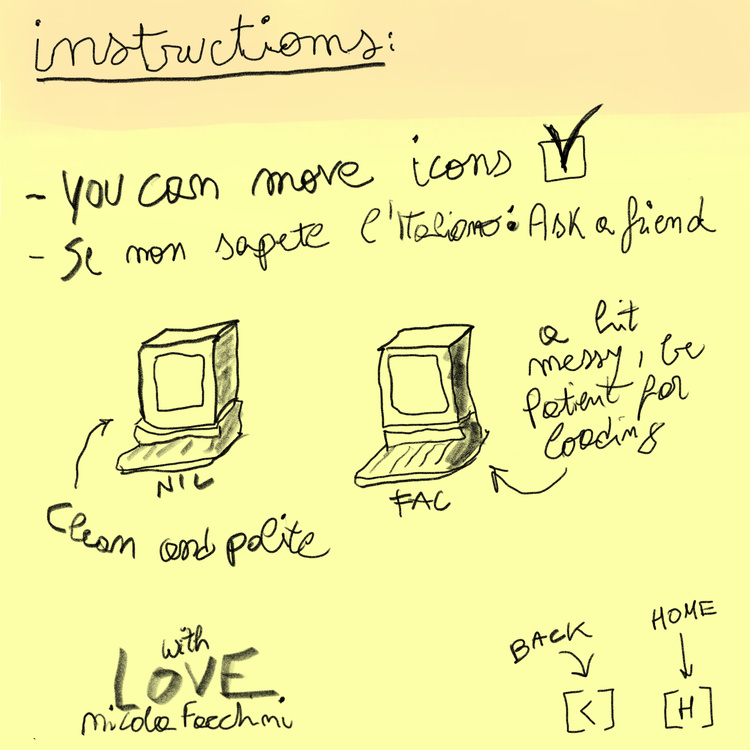 instructions:
- You can move icons
- Se non sapete l'Italiano: Ask a friend
a bit
messy, be
patient for
loading
NIC
FAC
Clean and polite
with
LOVE
Nicola Facchini
BACK
HOME
[<] [H]